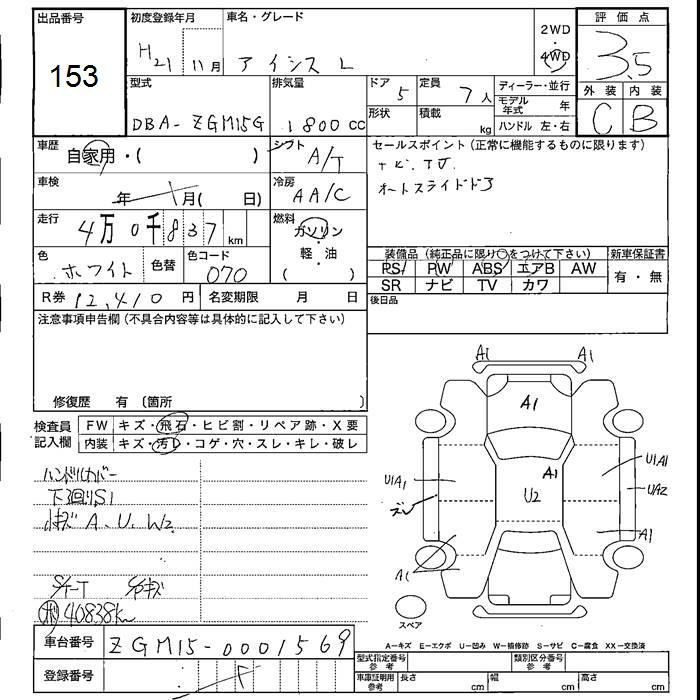 出品番号
153
初度登録年月
H21 11月
車名・グレード
アイシス L
2WD
4WD
評価点
3.5
外装 内装
C B
型式
DBA-ZGM15G
排気量
1800cc
ドア
5
形状
定員
7人
積載
kg
ディーラー・並行
モデル年式 年
ハンドル 左・右
車歴
自家用・( )
シフト
A/T
車検
年 月( 日)
冷房
AA/C
走行
4万0千837km
燃料
ガソリン
軽・油
( )
色
ホワイト
色替
色コード
070
R券 12,410円
名変期限 月 日
セールスポイント(正常に機能するものに限ります)
ナビ.TV.
オートスライドドア
装備品(純正品に限り○をつけて下さい)
新車保証書
PS PW ABS エアB AW
SR ナビ TV カワ
有・無
後日品
注意事項申告欄(不具合内容等は具体的に記入して下さい)
修復歴 有〔箇所 〕
検査員記入欄
FW キズ・飛石・ヒビ割・リペア跡・X要
内装 キズ・汚レ・コゲ・穴・スレ・キレ・破レ
ハンドルカバー
下廻りS1
A、U、W2
40838km
車台番号
ZGM15-0001569
登録番号
A1
A1
A1
A1
U2
U1A1
U1A1
UA2
A1
A1
スペア
A-キズ E-エクボ U-凹み W-補修跡 S-サビ C-腐食 XX-交換済
型式指定番号 参考
類別区分番号 参考
車庫証明用 参考
長さ cm
幅 cm
高さ cm